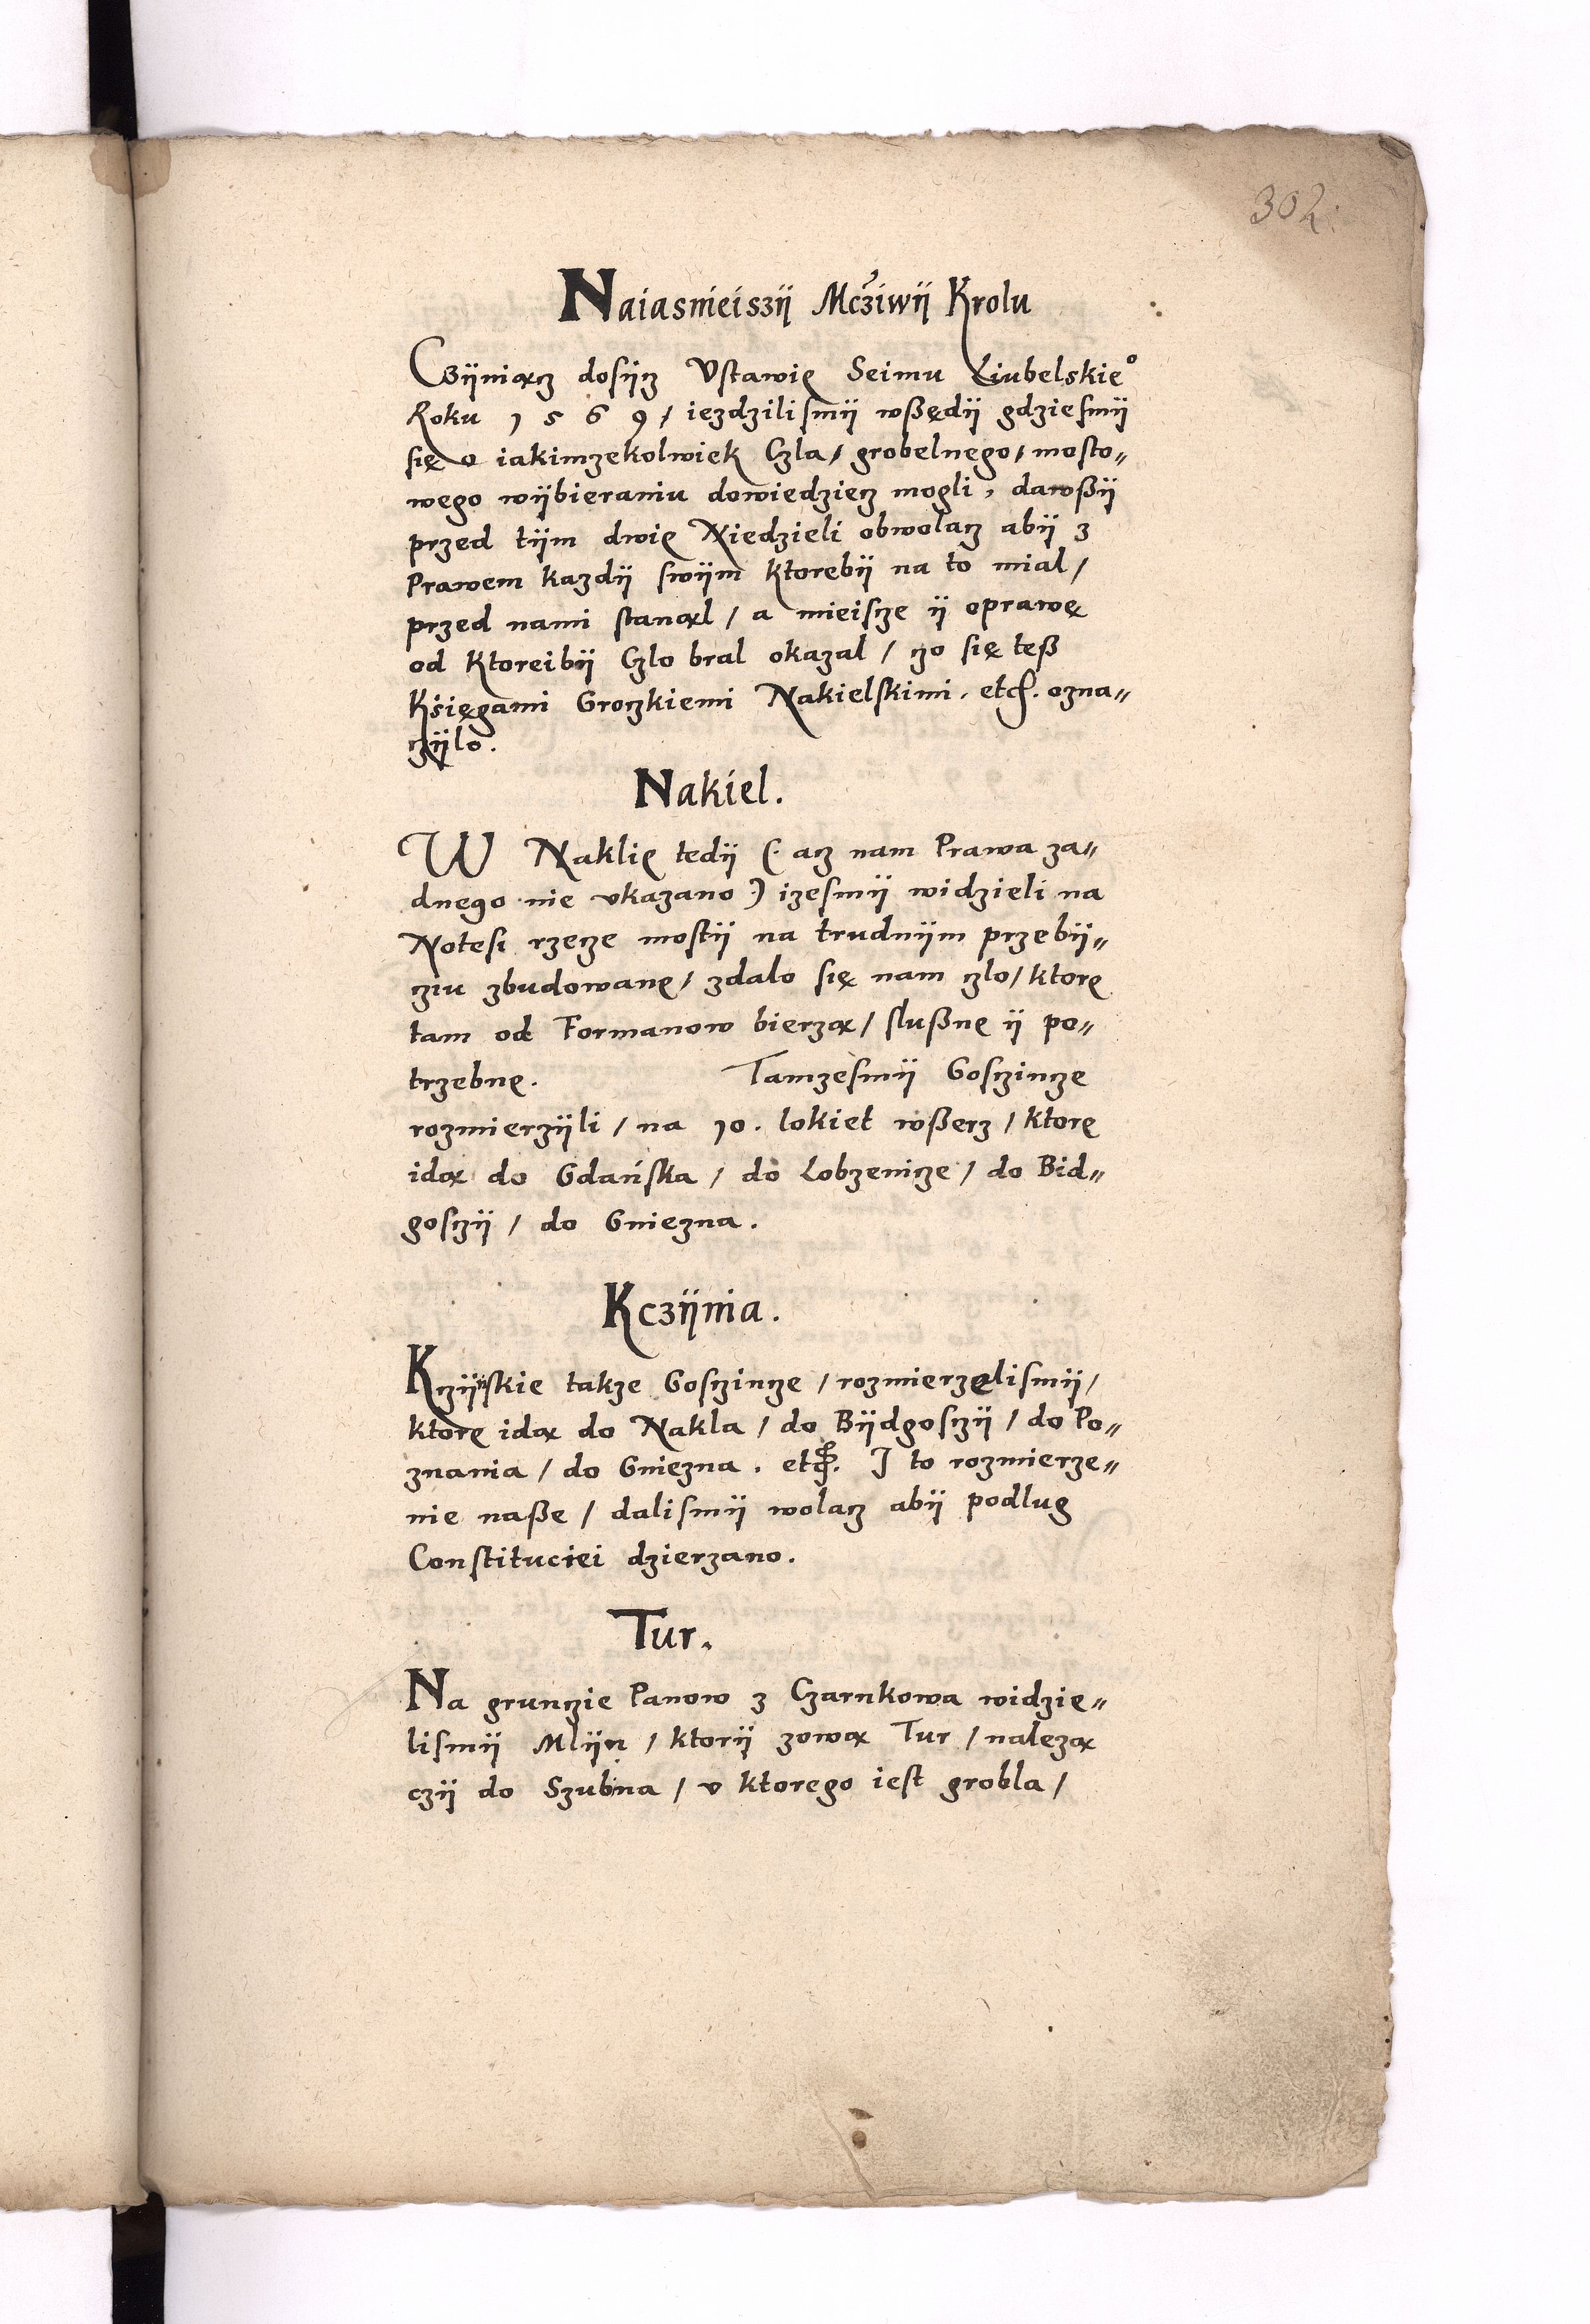 302.
Naiasnieiszÿ Mcziwÿ Krolu
Czÿniącz dosÿcz Vstawię Seimu Liubelskie°
Roku 1569 / iezdzilismÿ wßędÿ gdziesmÿ
się o iakimzekolwiek Czla / grobelnego / mosto„
wego wÿbieraniu dowiedziecz mogli, dawßÿ
przed tÿm dwię Niedzieli obwolacz abÿ z
Prawem kazdÿ swÿm ktorebÿ na to mial /
przed nami stanął / a mieiscze ÿ oprawę
od ktoreibÿ Czlo bral okazal / czo się teß
Księgami Groczkiemi Nakielskimi. etc. ozna„
czÿlo.
Nakiel.
W Naklię tedÿ (. acz nam Prawa za„
dnego nie vkazano .) izesmÿ widzieli na
Notesi rzecze mostÿ na trudnÿm przebÿ„
cziu zbudowanę / zdalo się nam czlo / ktorę
tam od Formanow bierzą / slußnę ÿ po„
trzebnę. Tamzesmÿ Gosczincze
rozmierzÿli / na 10. lokiet wßerz / ktorę
idą do Gdańska / do Lobzenicze / do Bid„
gosczÿ / do Gniezna.
Kczÿnia.
Kczÿnskie takze Gosczincze / rozmierzelismÿ /
ktorę idą do Nakla / do Bÿdgosczÿ / do Po„
znania / do Gniezna. etc. I to rozmierze„
nie naße / dalismÿ wolacz abÿ podlug
Constituciei dzierzano.
Tur.
Na grunczie Panow z Czarnkowa widzie„
lismÿ Mlÿn / ktorÿ zową Tur / nalezą
czÿ do Szubna / v ktorego iest grobla /